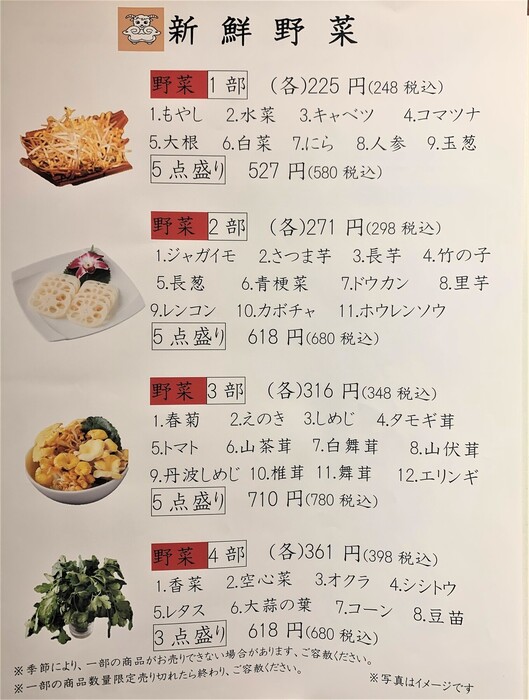 新鮮野菜
野菜1部 (各)225 円(248 税込)
1.もやし 2.水菜 3.キャベツ 4.コマツナ
5.大根 6.白菜 7.にら 8.人参 9.玉葱
5点盛り 527 円(580 税込)
野菜2部 (各)271 円(298 税込)
1.ジャガイモ 2.さつま芋 3.長芋 4.竹の子
5.長葱 6.青梗菜 7.ドウカン 8.里芋
9.レンコン 10.カボチャ 11.ホウレンソウ
5点盛り 618 円(680 税込)
野菜3部 (各)316 円(348 税込)
1.春菊 2.えのき 3.しめじ 4.タモギ茸
5.トマト 6.山茶茸 7.白舞茸 8.山伏茸
9.丹波しめじ 10.椎茸 11.舞茸 12.エリンギ
5点盛り 710 円(780 税込)
野菜4部 (各)361 円(398 税込)
1.香菜 2.空心菜 3.オクラ 4.シシトウ
5.レタス 6.大蒜の葉 7.コーン 8.豆苗
3点盛り 618 円(680 税込)
※季節により、一部の商品がお売りできない場合があります、ご容赦ください。
※一部の商品数量限定売り切れたら終わり、ご容赦ください。
※写真はイメージです